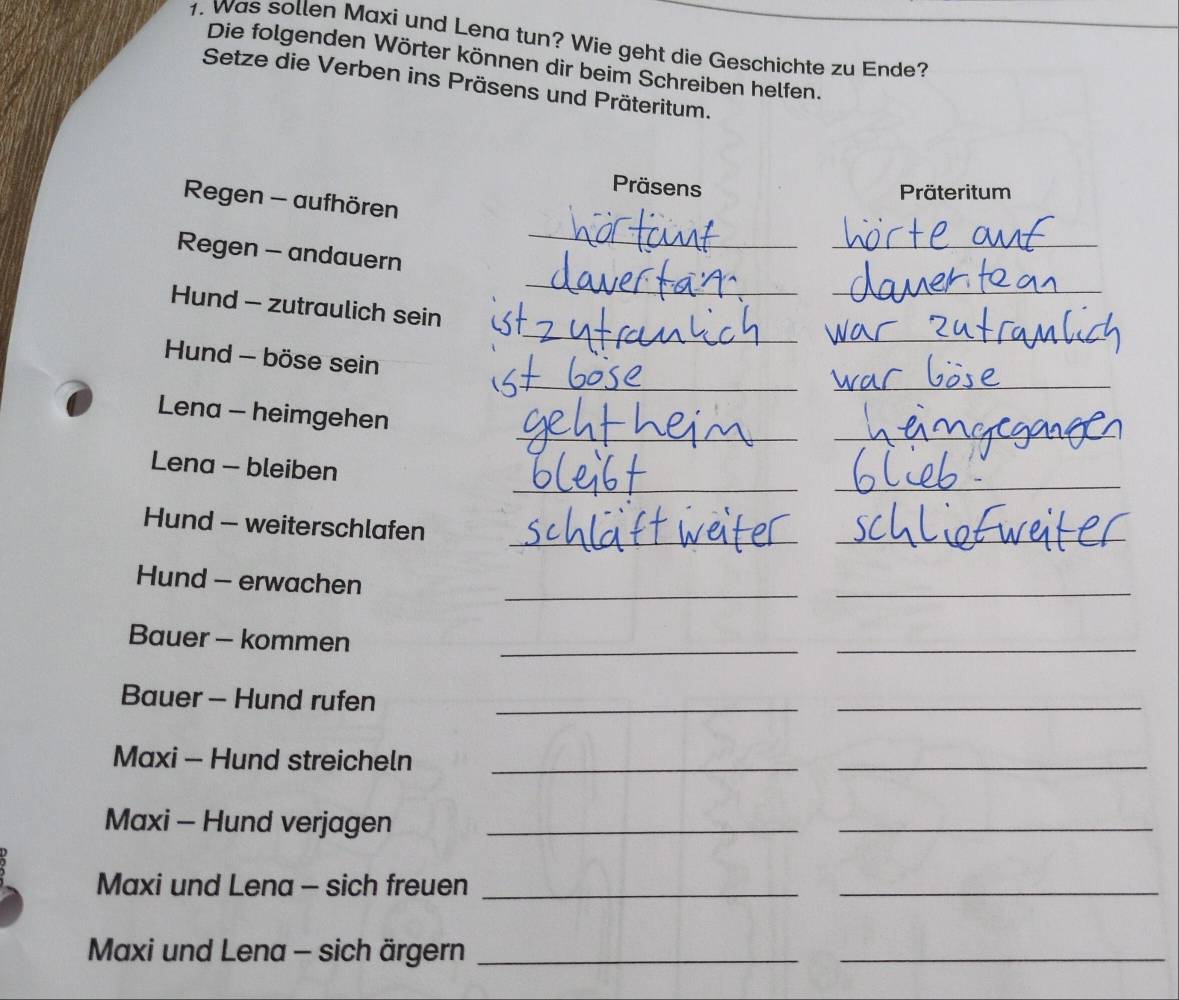 1. Was sollen Maxi und Lena tun? Wie geht die Geschichte zu Ende?
Die folgenden Wörter können dir beim Schreiben helfen.
Setze die Verben ins Präsens und Präteritum.
Präsens Präteritum
Regen – aufhören hört auf hörte auf
Regen – andauern dauert an dauerte an
Hund – zutraulich sein ist zutraulich war zutraulich
Hund – böse sein ist böse war böse
Lena – heimgehen geht heim heimgegangen
Lena – bleiben bleibt blieb
Hund – weiterschlafen schläft weiter schlief weiter
Hund – erwachen
Bauer – kommen
Bauer – Hund rufen
Maxi – Hund streicheln
Maxi – Hund verjagen
Maxi und Lena – sich freuen
Maxi und Lena – sich ärgern